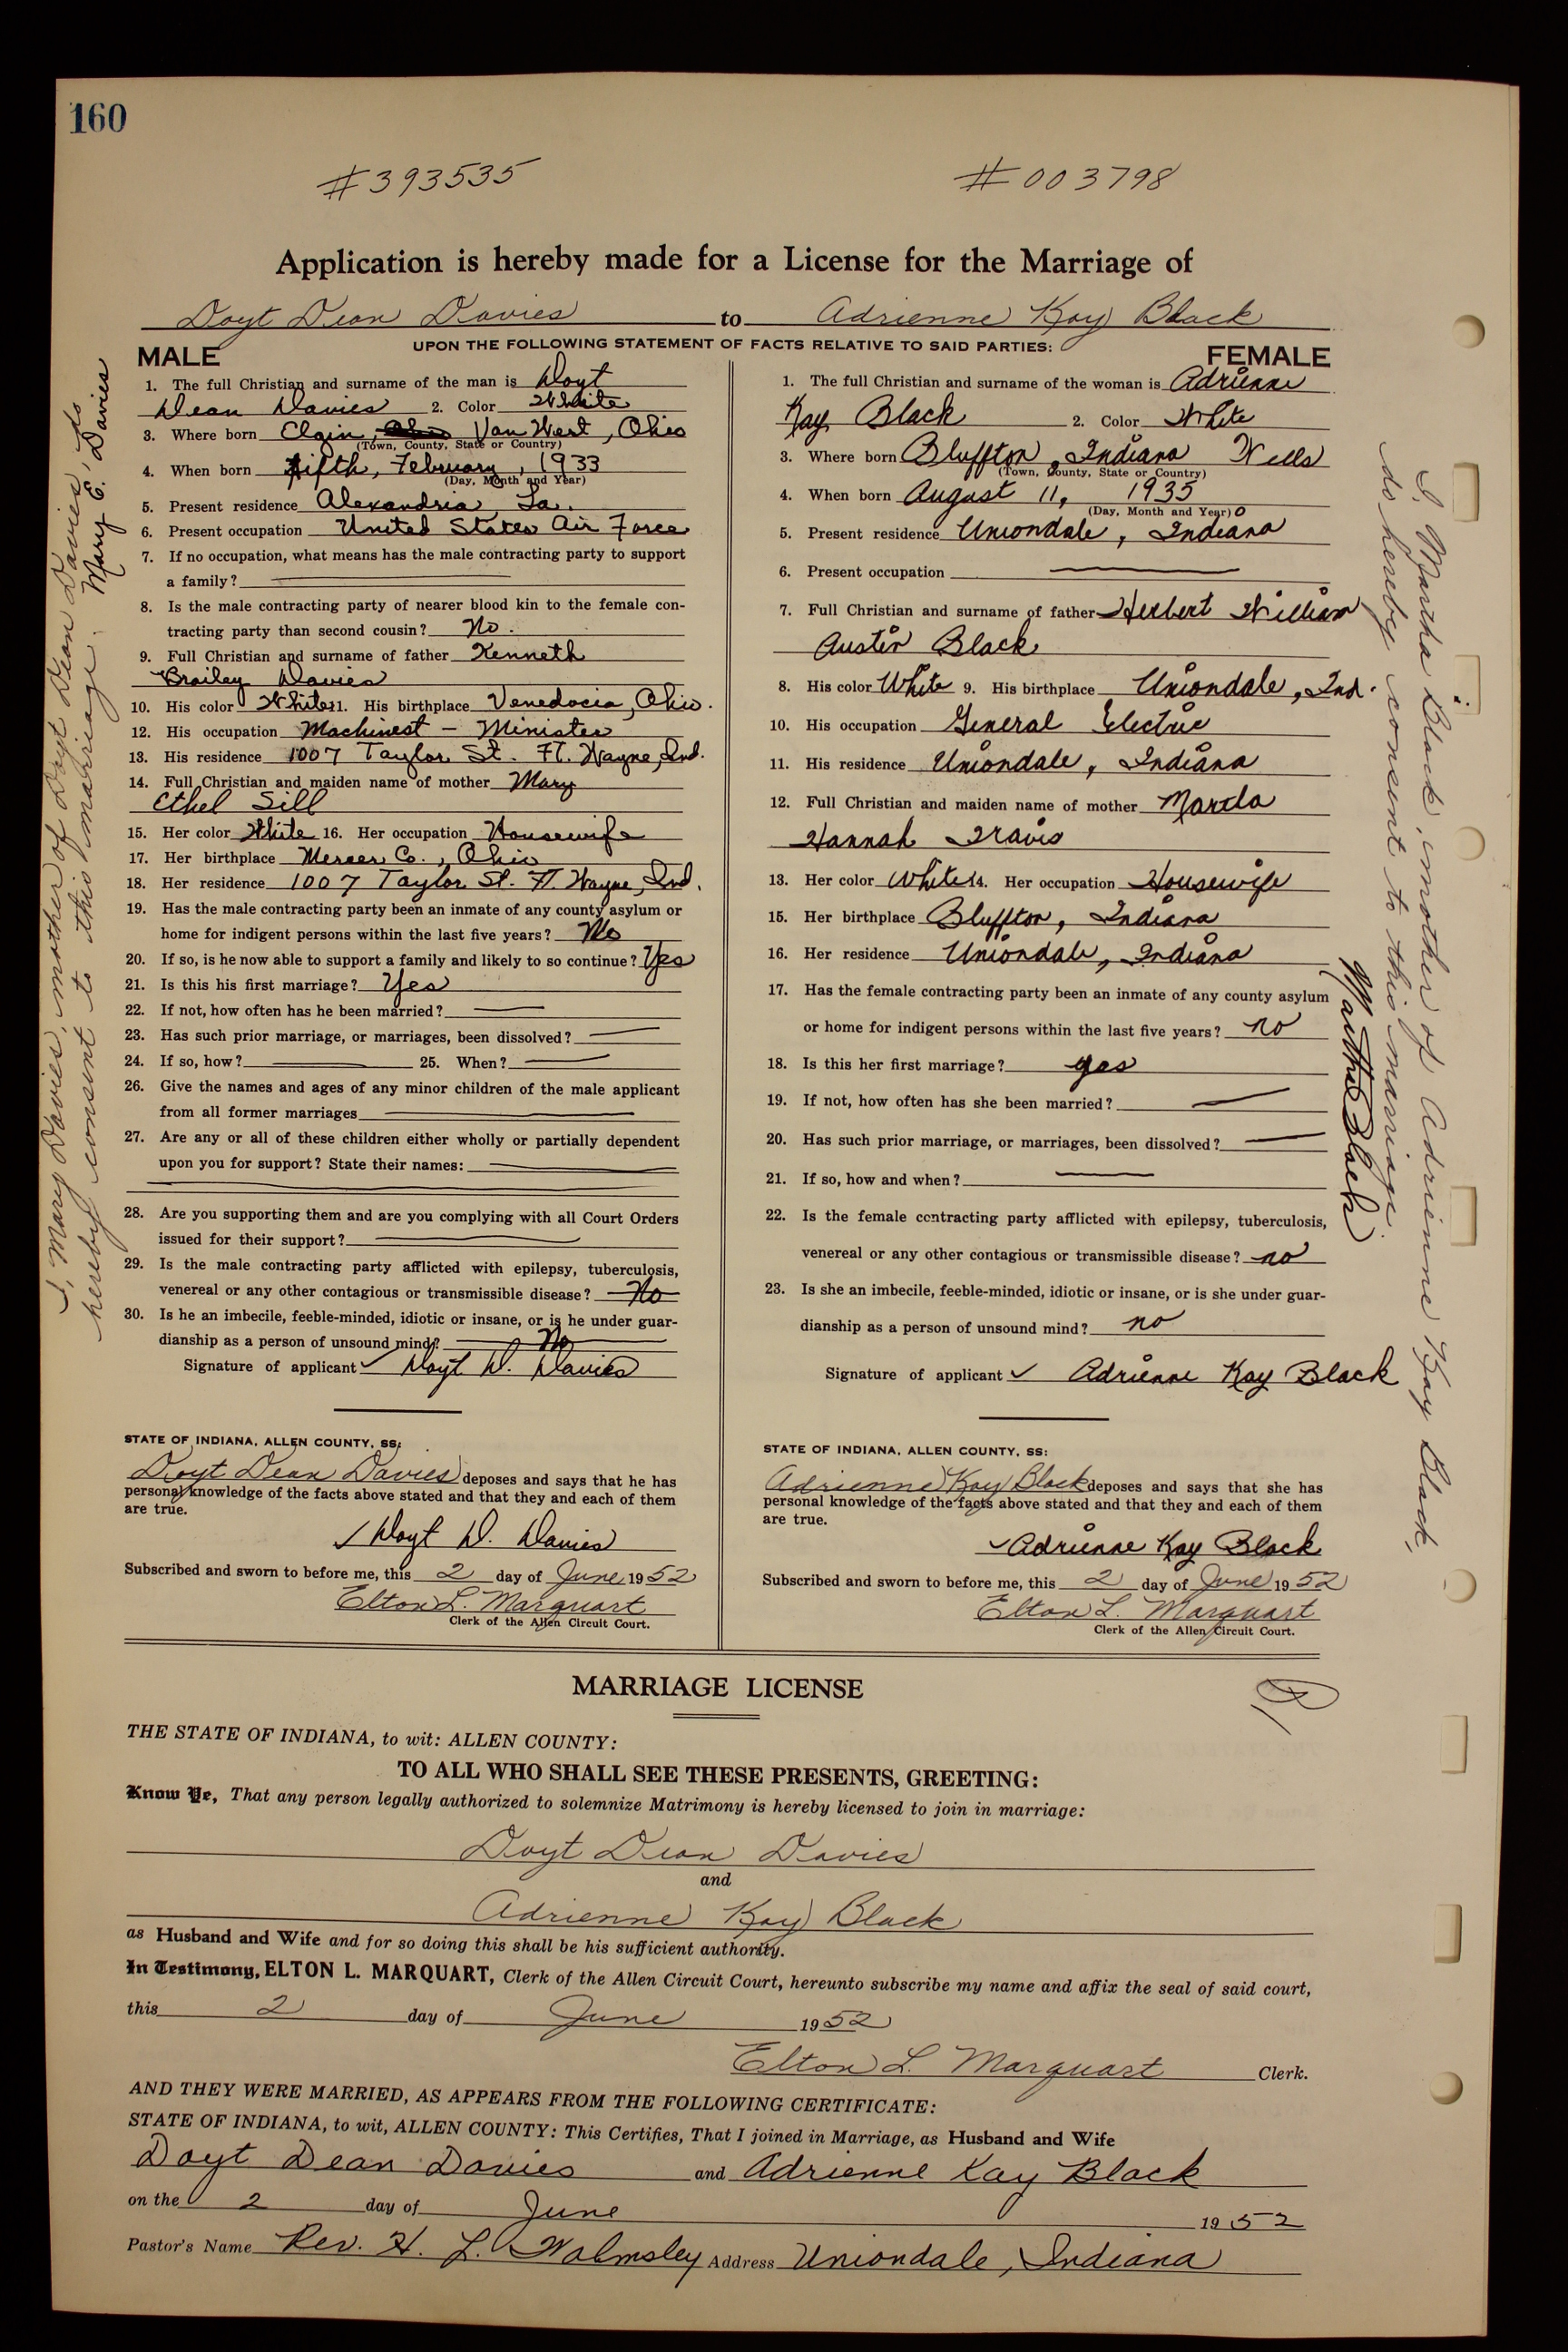 160
#393535 #003798
Application is hereby made for a License for the Marriage of
Doyt Dean Davies to Adrienne Kay Black
UPON THE FOLLOWING STATEMENT OF FACTS RELATIVE TO SAID PARTIES:
MALE
1. The full Christian and surname of the man is Doyt
Dean Davies 2. Color White
3. Where born Elgin, Van Wert, Ohio
(Town, County, State or Country)
4. When born fifth, February, 1933
(Day, Month and Year)
5. Present residence Alexandria, La.
6. Present occupation United States Air Force
7. If no occupation, what means has the male contracting party to support
a family?
8. Is the male contracting party of nearer blood kin to the female con-
tracting party than second cousin? No.
9. Full Christian and surname of father Kenneth
Brailey Davies
10. His color White 11. His birthplace Venedocia, Ohio.
12. His occupation Machinest - Minister
13. His residence 1007 Taylor St. Ft. Wayne, Ind.
14. Full Christian and maiden name of mother Mary
Ethel Sill
15. Her color White 16. Her occupation Housewife
17. Her birthplace Mercer Co., Ohio
18. Her residence 1007 Taylor St. Ft. Wayne, Ind.
19. Has the male contracting party been an inmate of any county asylum or
home for indigent persons within the last five years? No
20. If so, is he now able to support a family and likely to so continue? Yes
21. Is this his first marriage? Yes
22. If not, how often has he been married?
23. Has such prior marriage, or marriages, been dissolved?
24. If so, how? 25. When?
26. Give the names and ages of any minor children of the male applicant
from all former marriages
27. Are any or all of these children either wholly or partially dependent
upon you for support? State their names:
28. Are you supporting them and are you complying with all Court Orders
issued for their support?
29. Is the male contracting party afflicted with epilepsy, tuberculosis,
venereal or any other contagious or transmissible disease? No
30. Is he an imbecile, feeble-minded, idiotic or insane, or is he under guar-
dianship as a person of unsound mind? No
Signature of applicant ✓ Doyt D. Davies
STATE OF INDIANA, ALLEN COUNTY, SS:
Doyt Dean Davies deposes and says that he has
personal knowledge of the facts above stated and that they and each of them
are true.
✓ Doyt D. Davies
Subscribed and sworn to before me, this 2 day of June 1952
Elton L. Marquart
Clerk of the Allen Circuit Court.
I, Mary Davies, mother of Doyt Dean Davies, do
hereby consent to this marriage.
Mary E. Davies
FEMALE
1. The full Christian and surname of the woman is Adrienne
Kay Black 2. Color White
3. Where born Bluffton, Indiana Wells
(Town, County, State or Country)
4. When born August 11, 1935
(Day, Month and Year)
5. Present residence Uniondale, Indiana
6. Present occupation
7. Full Christian and surname of father Herbert William
Austin Black
8. His color White 9. His birthplace Uniondale, Ind.
10. His occupation General Electric
11. His residence Uniondale, Indiana
12. Full Christian and maiden name of mother Martha
Hannah Travis
13. Her color White 14. Her occupation Housewife
15. Her birthplace Bluffton, Indiana
16. Her residence Uniondale, Indiana
17. Has the female contracting party been an inmate of any county asylum
or home for indigent persons within the last five years? no
18. Is this her first marriage? yes
19. If not, how often has she been married?
20. Has such prior marriage, or marriages, been dissolved?
21. If so, how and when?
22. Is the female contracting party afflicted with epilepsy, tuberculosis,
venereal or any other contagious or transmissible disease? no
23. Is she an imbecile, feeble-minded, idiotic or insane, or is she under guar-
dianship as a person of unsound mind? no
Signature of applicant ✓ Adrienne Kay Black
STATE OF INDIANA, ALLEN COUNTY, SS:
Adrienne Kay Black deposes and says that she has
personal knowledge of the facts above stated and that they and each of them
are true.
✓ Adrienne Kay Black
Subscribed and sworn to before me, this 2 day of June 1952
Elton L. Marquart
Clerk of the Allen Circuit Court.
I, Martha Black, mother of Adrienne Kay Black,
do hereby consent to this marriage.
Martha Black
MARRIAGE LICENSE
THE STATE OF INDIANA, to wit: ALLEN COUNTY:
TO ALL WHO SHALL SEE THESE PRESENTS, GREETING:
Know Ye, That any person legally authorized to solemnize Matrimony is hereby licensed to join in marriage:
Doyt Dean Davies
and
Adrienne Kay Black
as Husband and Wife and for so doing this shall be his sufficient authority.
In Testimony, ELTON L. MARQUART, Clerk of the Allen Circuit Court, hereunto subscribe my name and affix the seal of said court,
this 2 day of June 1952
Elton L. Marquart Clerk.
AND THEY WERE MARRIED, AS APPEARS FROM THE FOLLOWING CERTIFICATE:
STATE OF INDIANA, to wit, ALLEN COUNTY: This Certifies, That I joined in Marriage, as Husband and Wife
Doyt Dean Davies and Adrienne Kay Black
on the 2 day of June 1952
Pastor's Name Rev. H. L. Walmsley Address Uniondale, Indiana